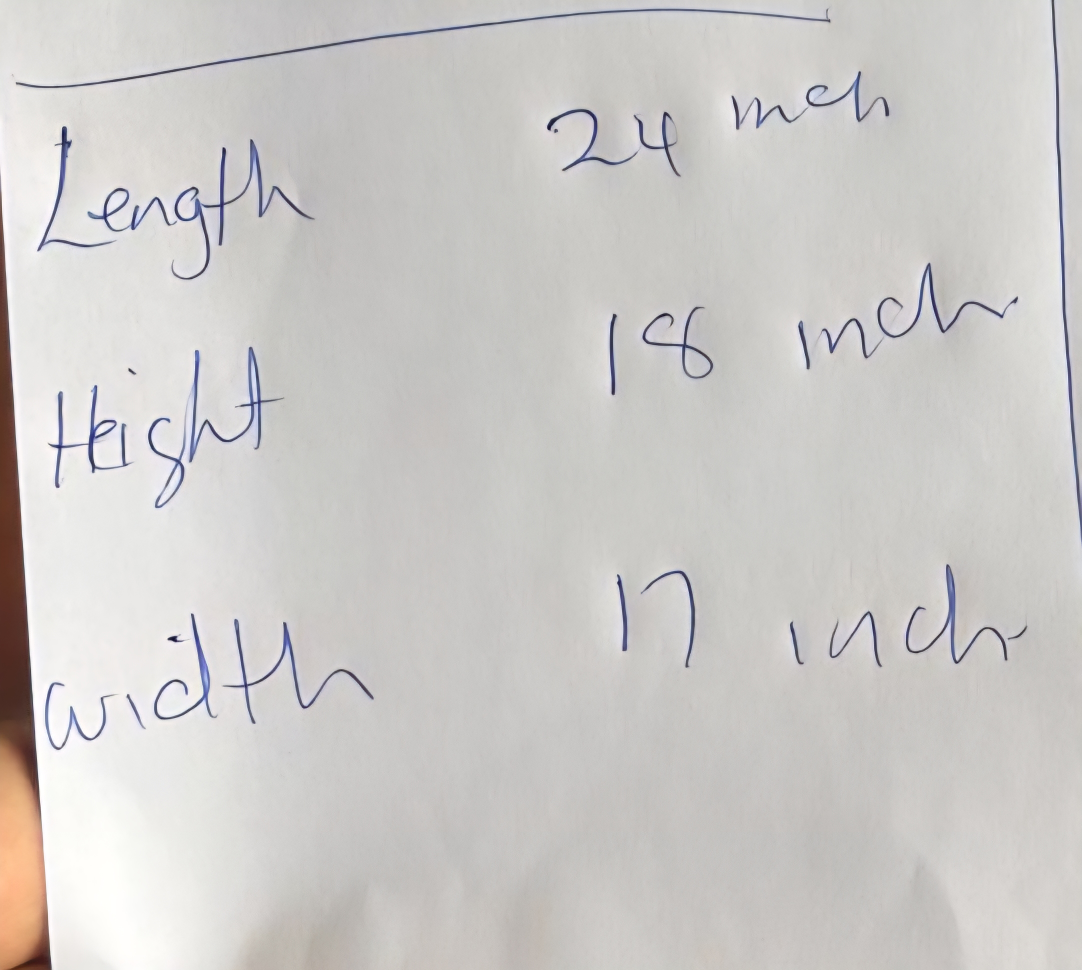 Length 24 inch
Height 18 inch
width 17 inch